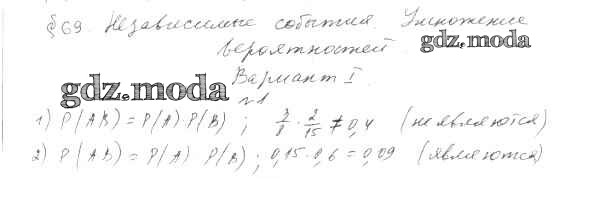 § 69. Независимые события. Умножение
вероятностей.
gdz.moda
Вариант I.
gdz.moda
№1
1) P(AB) = P(A) P(B) ; 7/8 · 2/15 ≠ 0,4 (не являются)
2) P(AB) = P(A) P(B) ; 0,15 · 0,6 = 0,09 (являются)